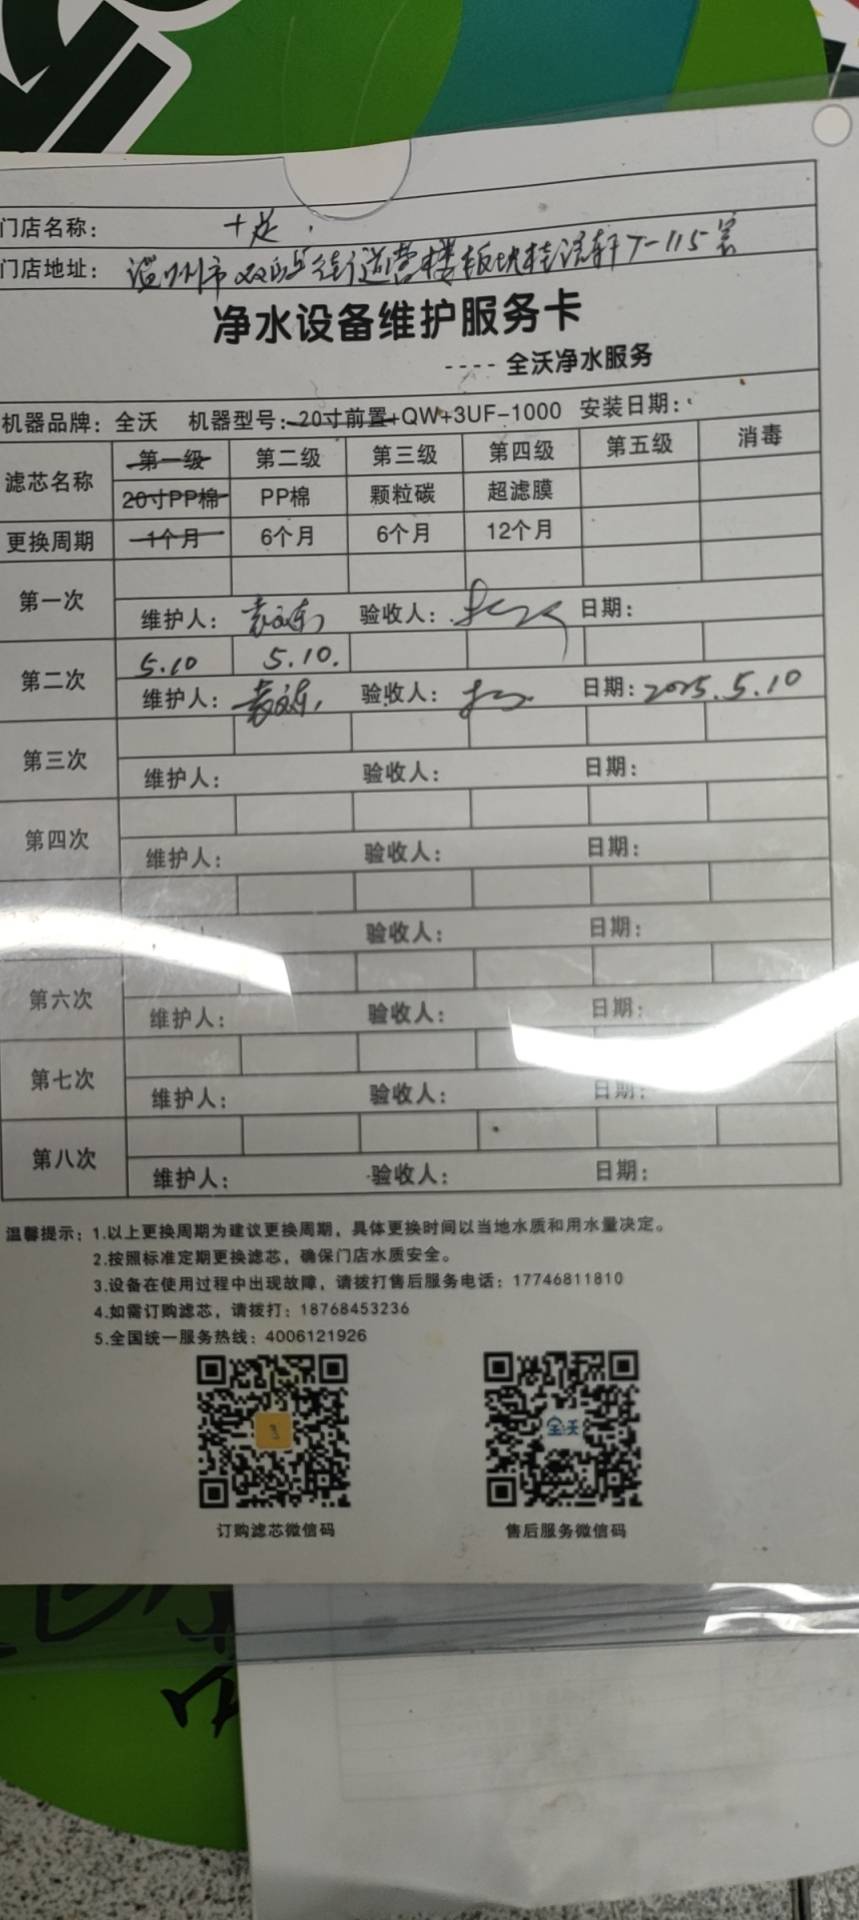 门店名称： 十足
门店地址： 温州市双屿街道营楼板块桂语轩7-115室
净水设备维护服务卡
---- 全沃净水服务
机器品牌：全沃 机器型号：20寸前置+QW+3UF-1000 安装日期：
滤芯名称 第一级 第二级 第三级 第四级 第五级 消毒
20寸PP棉 PP棉 颗粒碳 超滤膜
更换周期 1个月 6个月 6个月 12个月
第一次
维护人： 验收人： 日期：
第二次 5.10 5.10.
维护人： 验收人： 日期：2025.5.10
第三次
维护人： 验收人： 日期：
第四次
维护人： 验收人： 日期：
验收人： 日期：
第六次
维护人： 验收人： 日期：
第七次
维护人： 验收人： 日期：
第八次
维护人： 验收人： 日期：
温馨提示：1.以上更换周期为建议更换周期，具体更换时间以当地水质和用水量决定。
2.按照标准定期更换滤芯，确保门店水质安全。
3.设备在使用过程中出现故障，请拨打售后服务电话：17746811810
4.如需订购滤芯，请拨打：18768453236
5.全国统一服务热线：4006121926
全沃
订购滤芯微信码 售后服务微信码